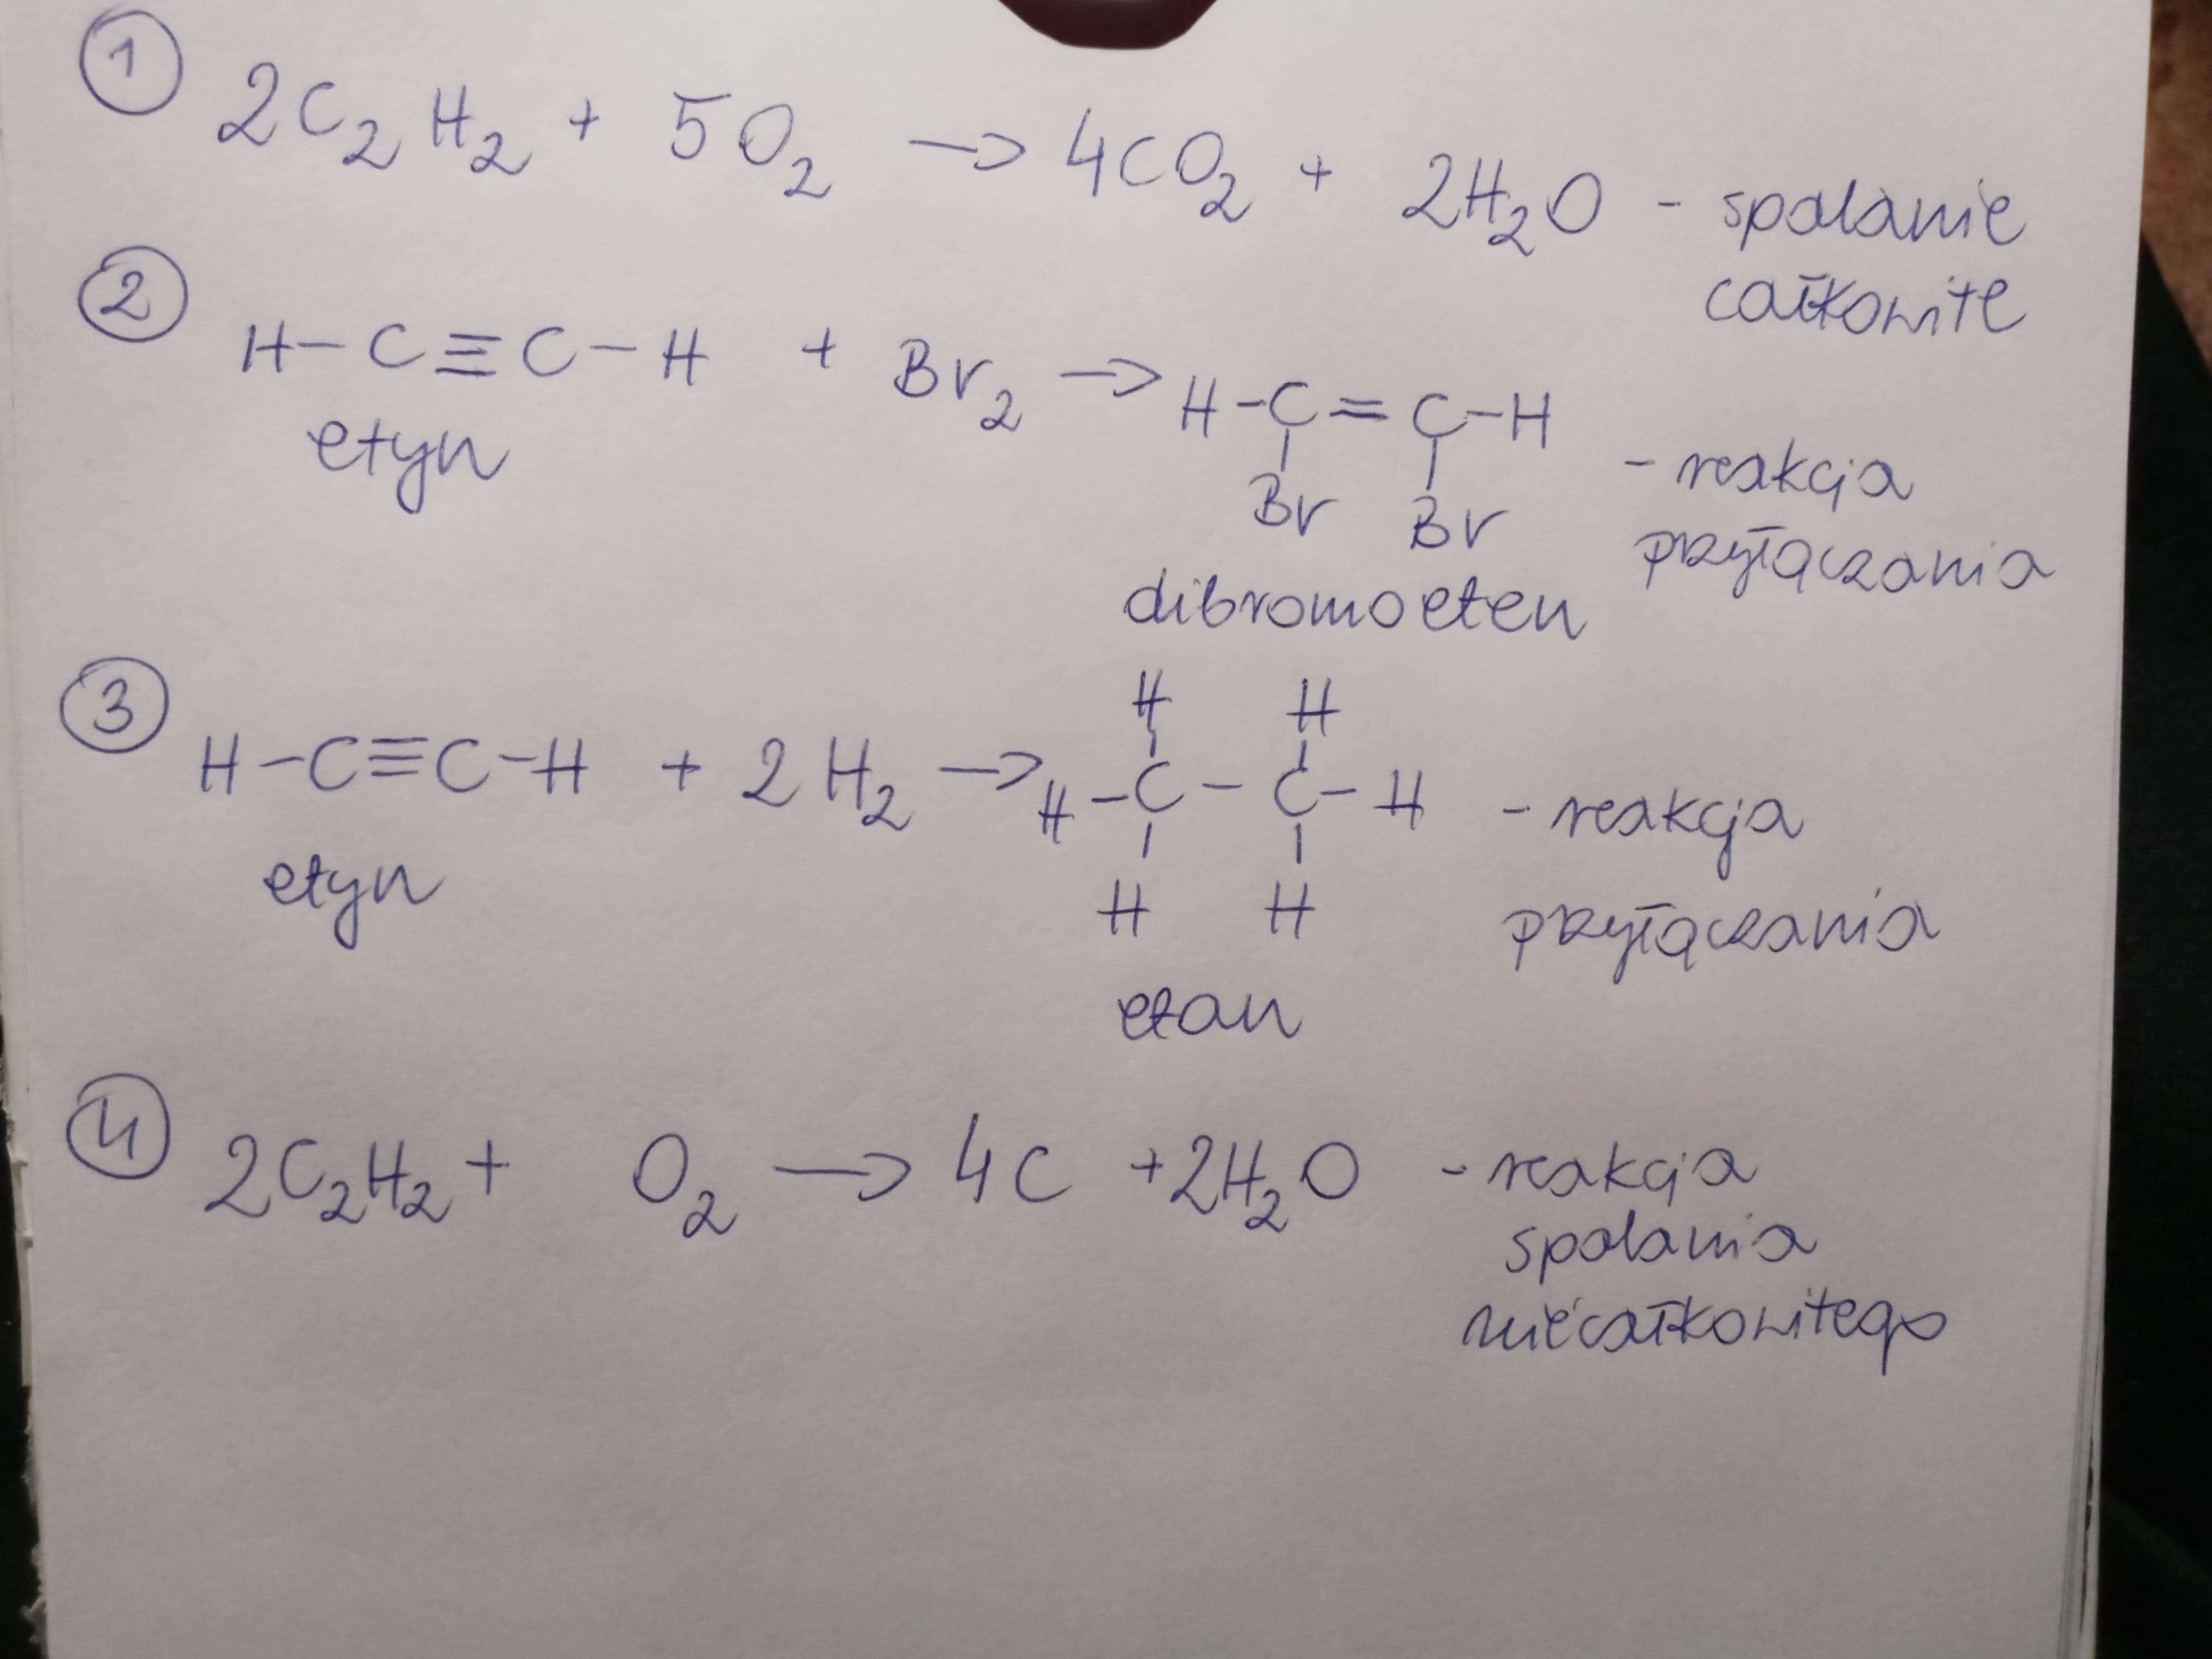 ① 2C₂H₂ + 5O₂ → 4CO₂ + 2H₂O - spalanie
całkowite
② H-C≡C-H + Br₂ → H-C=C-H
Br Br
etyn
- reakcja
przyłączania
dibromoeten
③ H H
H-C≡C-H + 2H₂ → H-C-C-H - reakcja
H H
etyn
przyłączania
etan
④ 2C₂H₂ + O₂ → 4C +2H₂O - reakcja
spalania
niecałkowitego